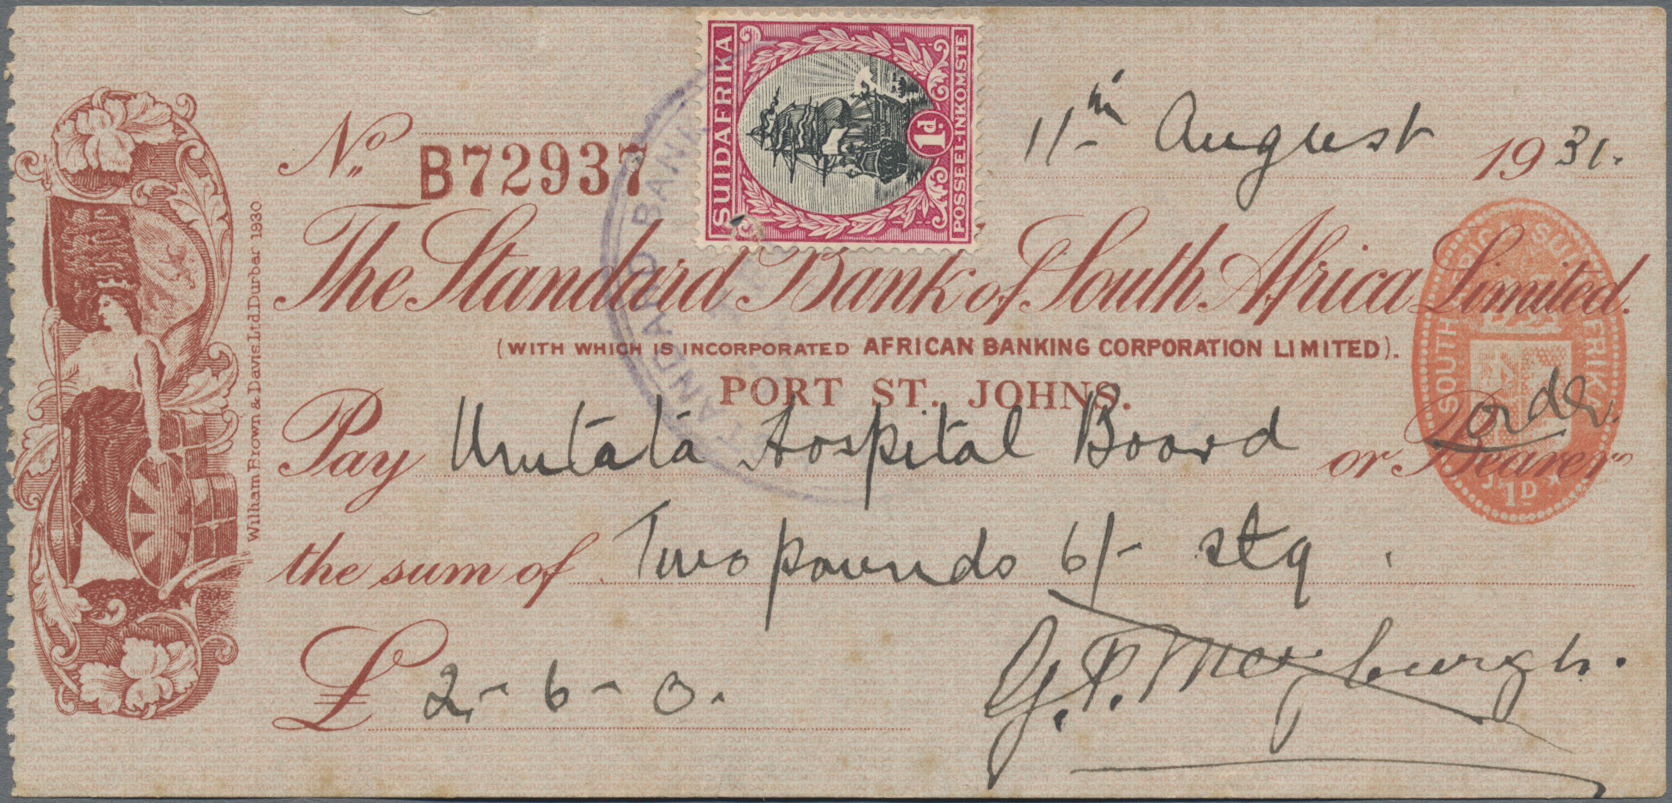 SUIDAFRIKA
POSSEËL-INKOMSTE
1d.
No. B72937
11th August 1931.
The Standard Bank of South Africa Limited.
(WITH WHICH IS INCORPORATED AFRICAN BANKING CORPORATION LIMITED).
PORT ST. JOHNS.
Pay Umtata Hospital Board or Bearer
order
the sum of Two pounds 6/- stg.
£ 2-6-0.
STANDARD BANK
SOUTH AFRIKA
1D
William Brown & Davis Ltd. Durban 1930